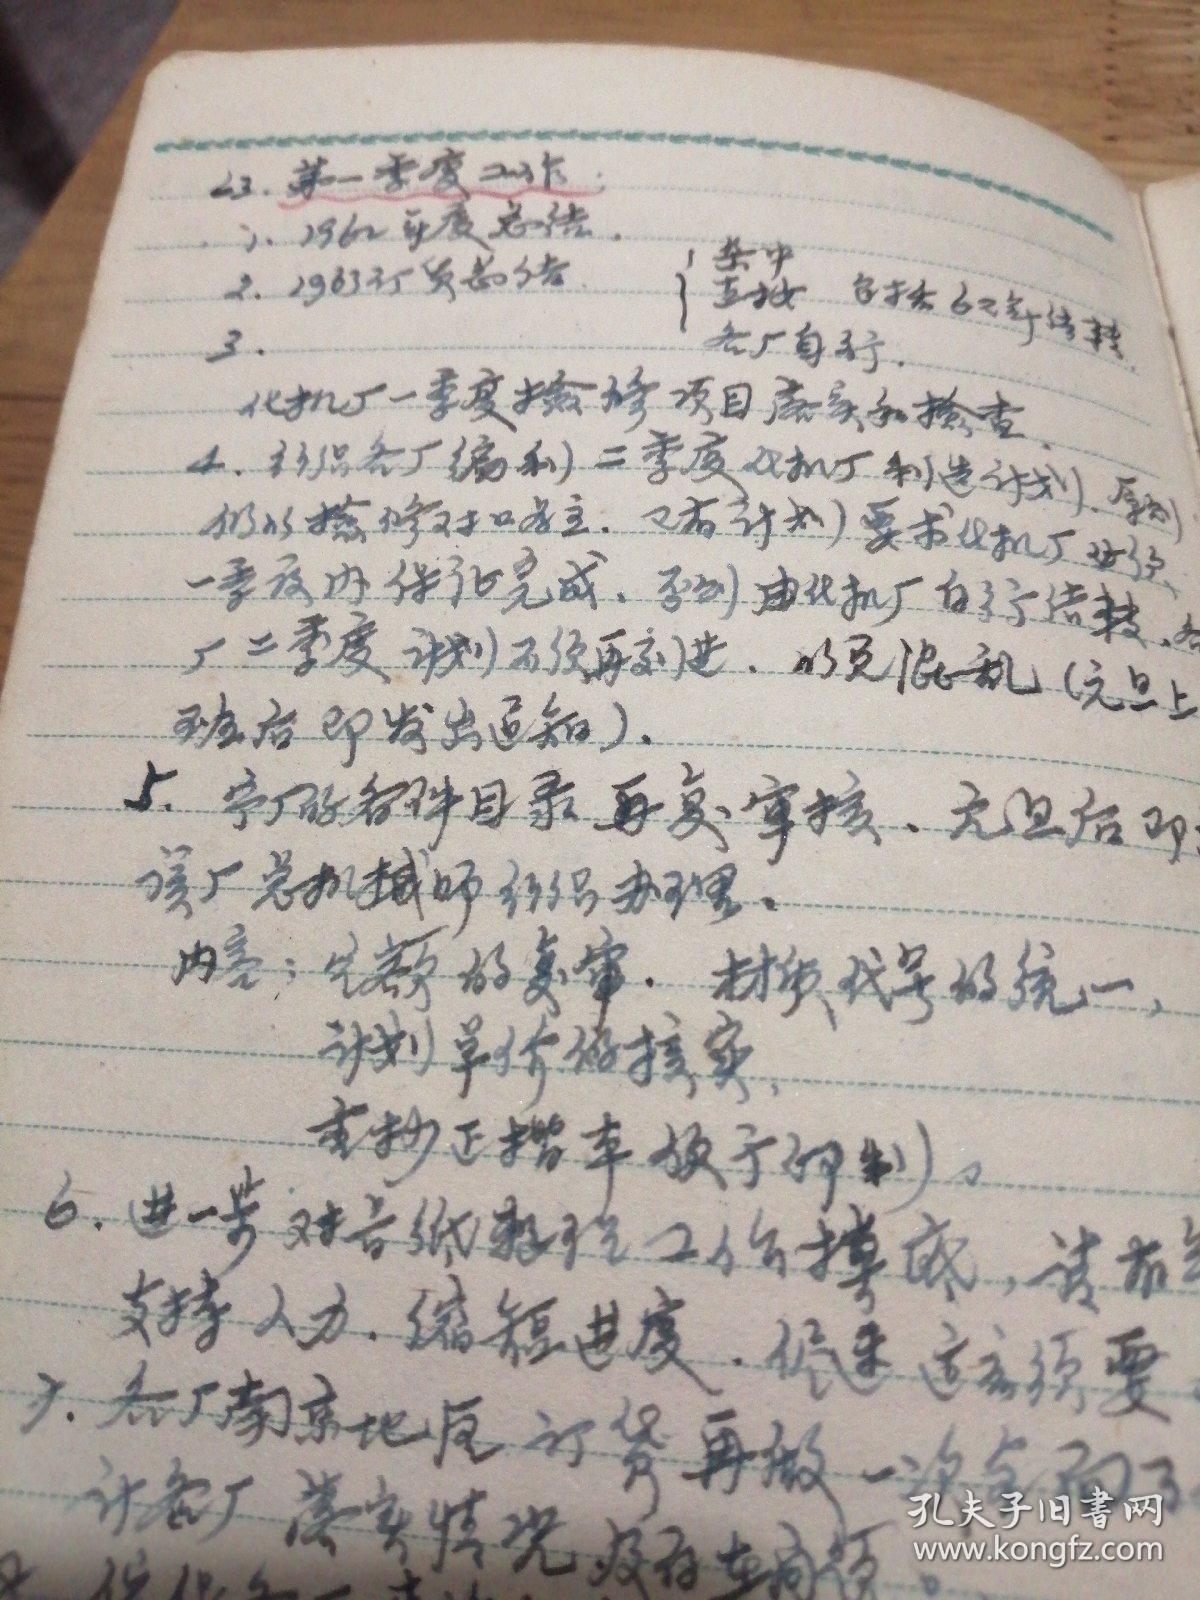 23. 第一季度工作.
1. 1962年度总结.
2. 1963订货总结. 集中
直接 包括62年结转
3. 各厂自行.
化机厂一季度检修项目落实和检查.
4. 组织各厂编制二季度化机厂制造计划. 原则
仍以检修对口为主. 已有计划要求化机厂
一季度内保证完成. 否则由化机厂自行结转. 各
厂二季度计划不须再列进. 以免混乱(元旦上
班后即发出通知).
5. 宁厂的备件目录再复审核. 元旦后即
该厂总机械师组织办理.
内容: 定额的复审. 材质、代号的统一,
计划单价的核实,
重抄正楷本放于印制.
6. 进一步对各纸整理工作摸底, 请
支持人力. 缩短进度.
7. 各厂南京地区订货再做一次全面了
计各厂落实情况及存在问题.
孔夫子旧书网
www.kongfz.com